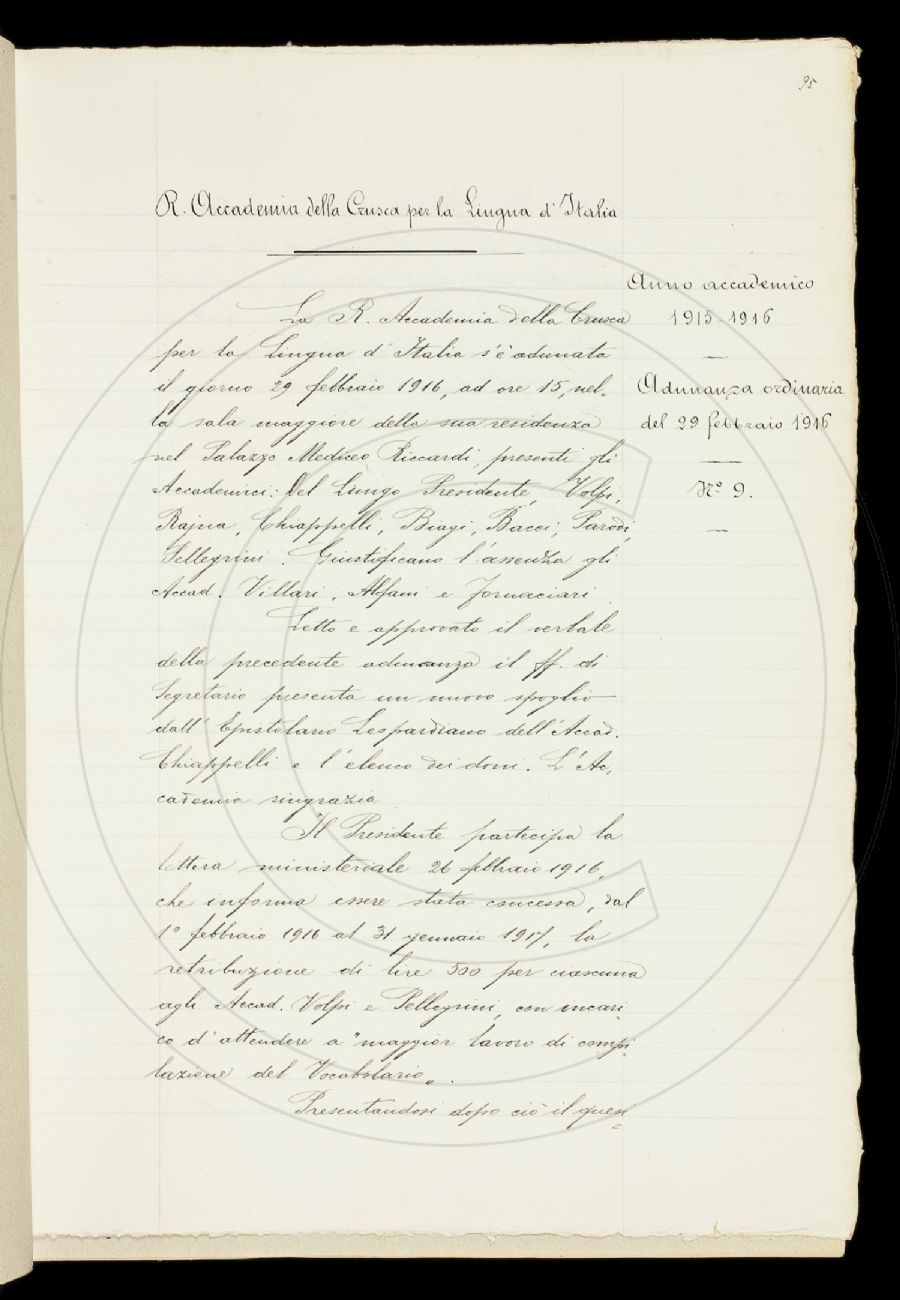 95
R. Accademia della Crusca per la Lingua d'Italia
Anno accademico
1915-1916
Adunanza ordinaria
del 29 febbraio 1916
N.º 9.
La R. Accademia della Crusca
per la Lingua d'Italia s'è adunata
il giorno 29 febbraio 1916, ad ore 15, nel-
la sala maggiore della sua residenza
nel Palazzo Mediceo Riccardi, presenti gli
Accademici: Del Lungo Presidente, Volpi,
Rajna, Chiappelli, Biagi, Bacci, Parodi,
Pellegrini. Giustificano l'assenza gli
Accad. Villari, Alfani e Fornaciari.
Letto e approvato il verbale
della precedente adunanza il ff. di
Segretario presenta un nuovo spoglio
dall'Epistolario Leopardiano dell'Accad.
Chiappelli e l'elenco dei doni. L'Ac-
cademia ringrazia.
Il Presidente partecipa la
lettera ministeriale 26 febbraio 1916,
che informa essere stata concessa, dal
1º febbraio 1916 al 31 gennaio 1917, la
retribuzione di lire 500 per ciascuno
agli Accad. Volpi e Pellegrini, con incari-
co d'attendere a "maggior lavoro di compi-
lazione del Vocabolario„.
Presentandosi dopo ciò il quesi=